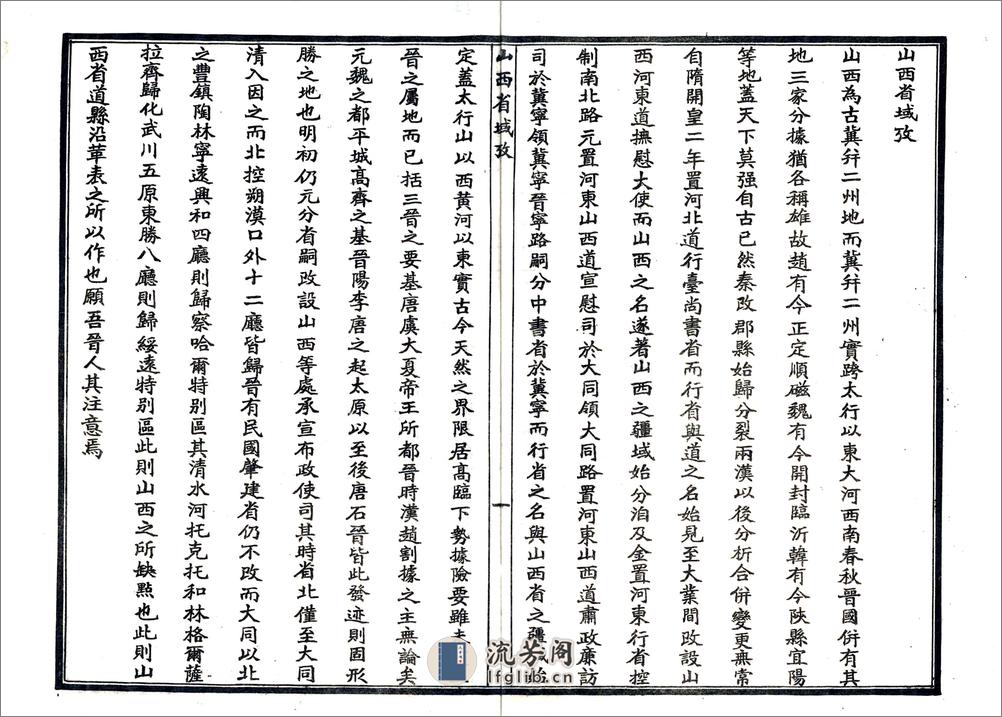 山西省域攷
山西為古冀并二州地而冀并二州實跨太行以東大河西南春秋晉國併有其
地三家分據猶各稱雄故趙有今正定順磁魏有今開封臨沂韓有今陝縣宜陽
等地蓋天下莫强自古已然秦改郡縣始歸分裂兩漢以後分析合併變更無常
自隋開皇二年置河北道行臺尚書省而行省與道之名始見至大業間改設山
西河東道撫慰大使而山西之名遂著山西之疆域始分洎及金置河東行省控
制南北路元置河東山西道宣慰司於大同領大同路置河東山西道肅政廉訪
司於冀寧領冀寧晉寧路嗣分中書省於冀寧而行省之名與山西省之疆域始
山西省域攷
一
定蓋太行山以西黃河以東實古今天然之界限居高臨下勢據險要雖
晉之屬地而已括三晉之要基唐虞大夏帝王所都晉時漢趙割據之主無論矣
元魏之都平城高齊之基晉陽李唐之起太原以至後唐石晉皆此發迹則固形
勝之地也明初仍元分省嗣改設山西等處承宣布政使司其時省北僅至大同
清入因之而北控朔漠口外十二廳皆歸晉有民國肇建省仍不改而大同以北
之豐鎮陶林寧遠興和四廳則歸察哈爾特别區其清水河托克托和林格爾薩
拉齊歸化武川五原東勝八廳則歸綏遠特别區此則山西之所缺點也此則山
西省道縣沿革表之所以作也願吾晉人其注意焉
流芳阁
lfglib.com